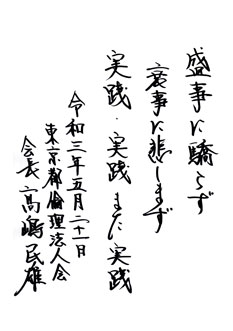 盛事に驕らず
衰事に悲しまず
実践・実践また実践
令和三年五月二十一日
東京都倫理法人会
会長 高嶋民雄